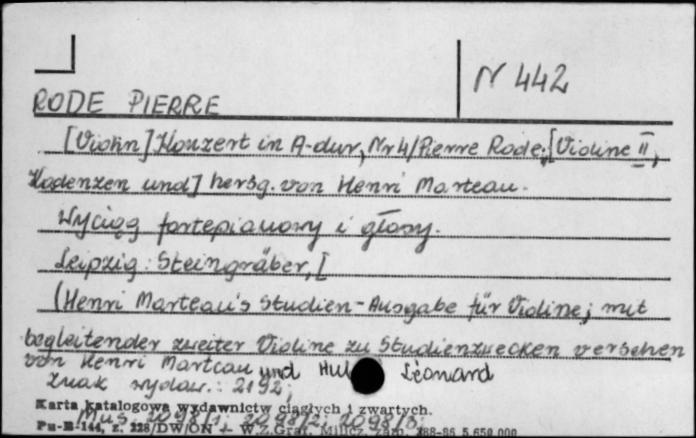 N 442
RODE PIERRE
[Violin] Konzert in A-dur, Nr 4/Pierre Rode; [Violine II,
Kadenzen und] hersg. von Henri Marteau.
Wyciąg fortepianowy i głosy.
Leipzig: Steingräber, [
(Henri Marteau's Studien-Ausgabe für Violine; mit
begleitender zweiter Violine zu Studienzwecken versehen
von Henri Marteau und Léonard
Znak wydaw.: 2192;
Karta katalogowa wydawnictw ciągłych i zwartych.
Mus. 2098/1; 2098/2; 2098/3.
Pu-B-144, z. 228/DW/ON + W.Z.Graf. Milicz, zam. 288-86 5.650.000